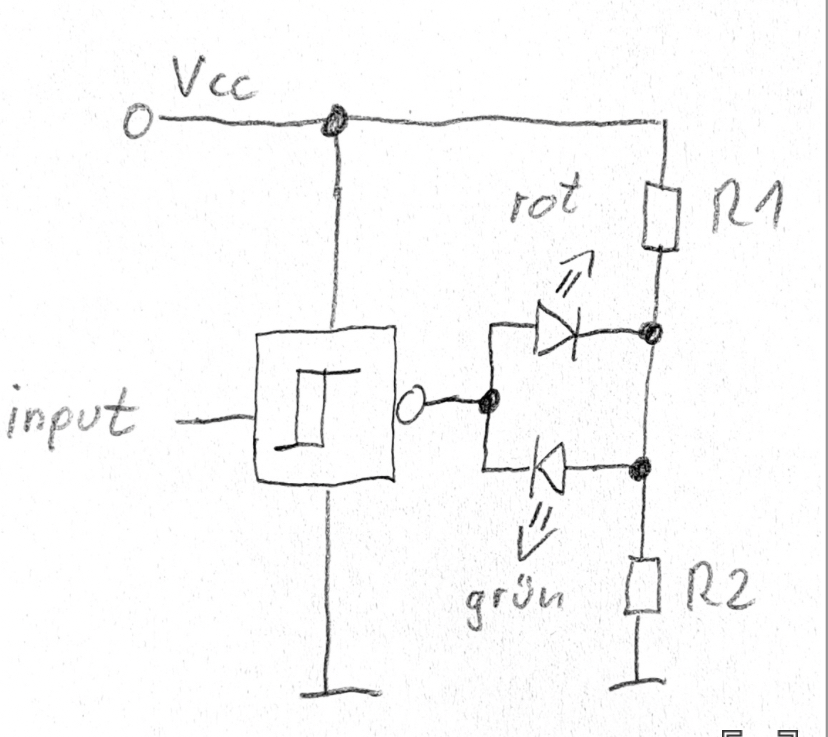 Vcc
rot
R1
input
grün
R2